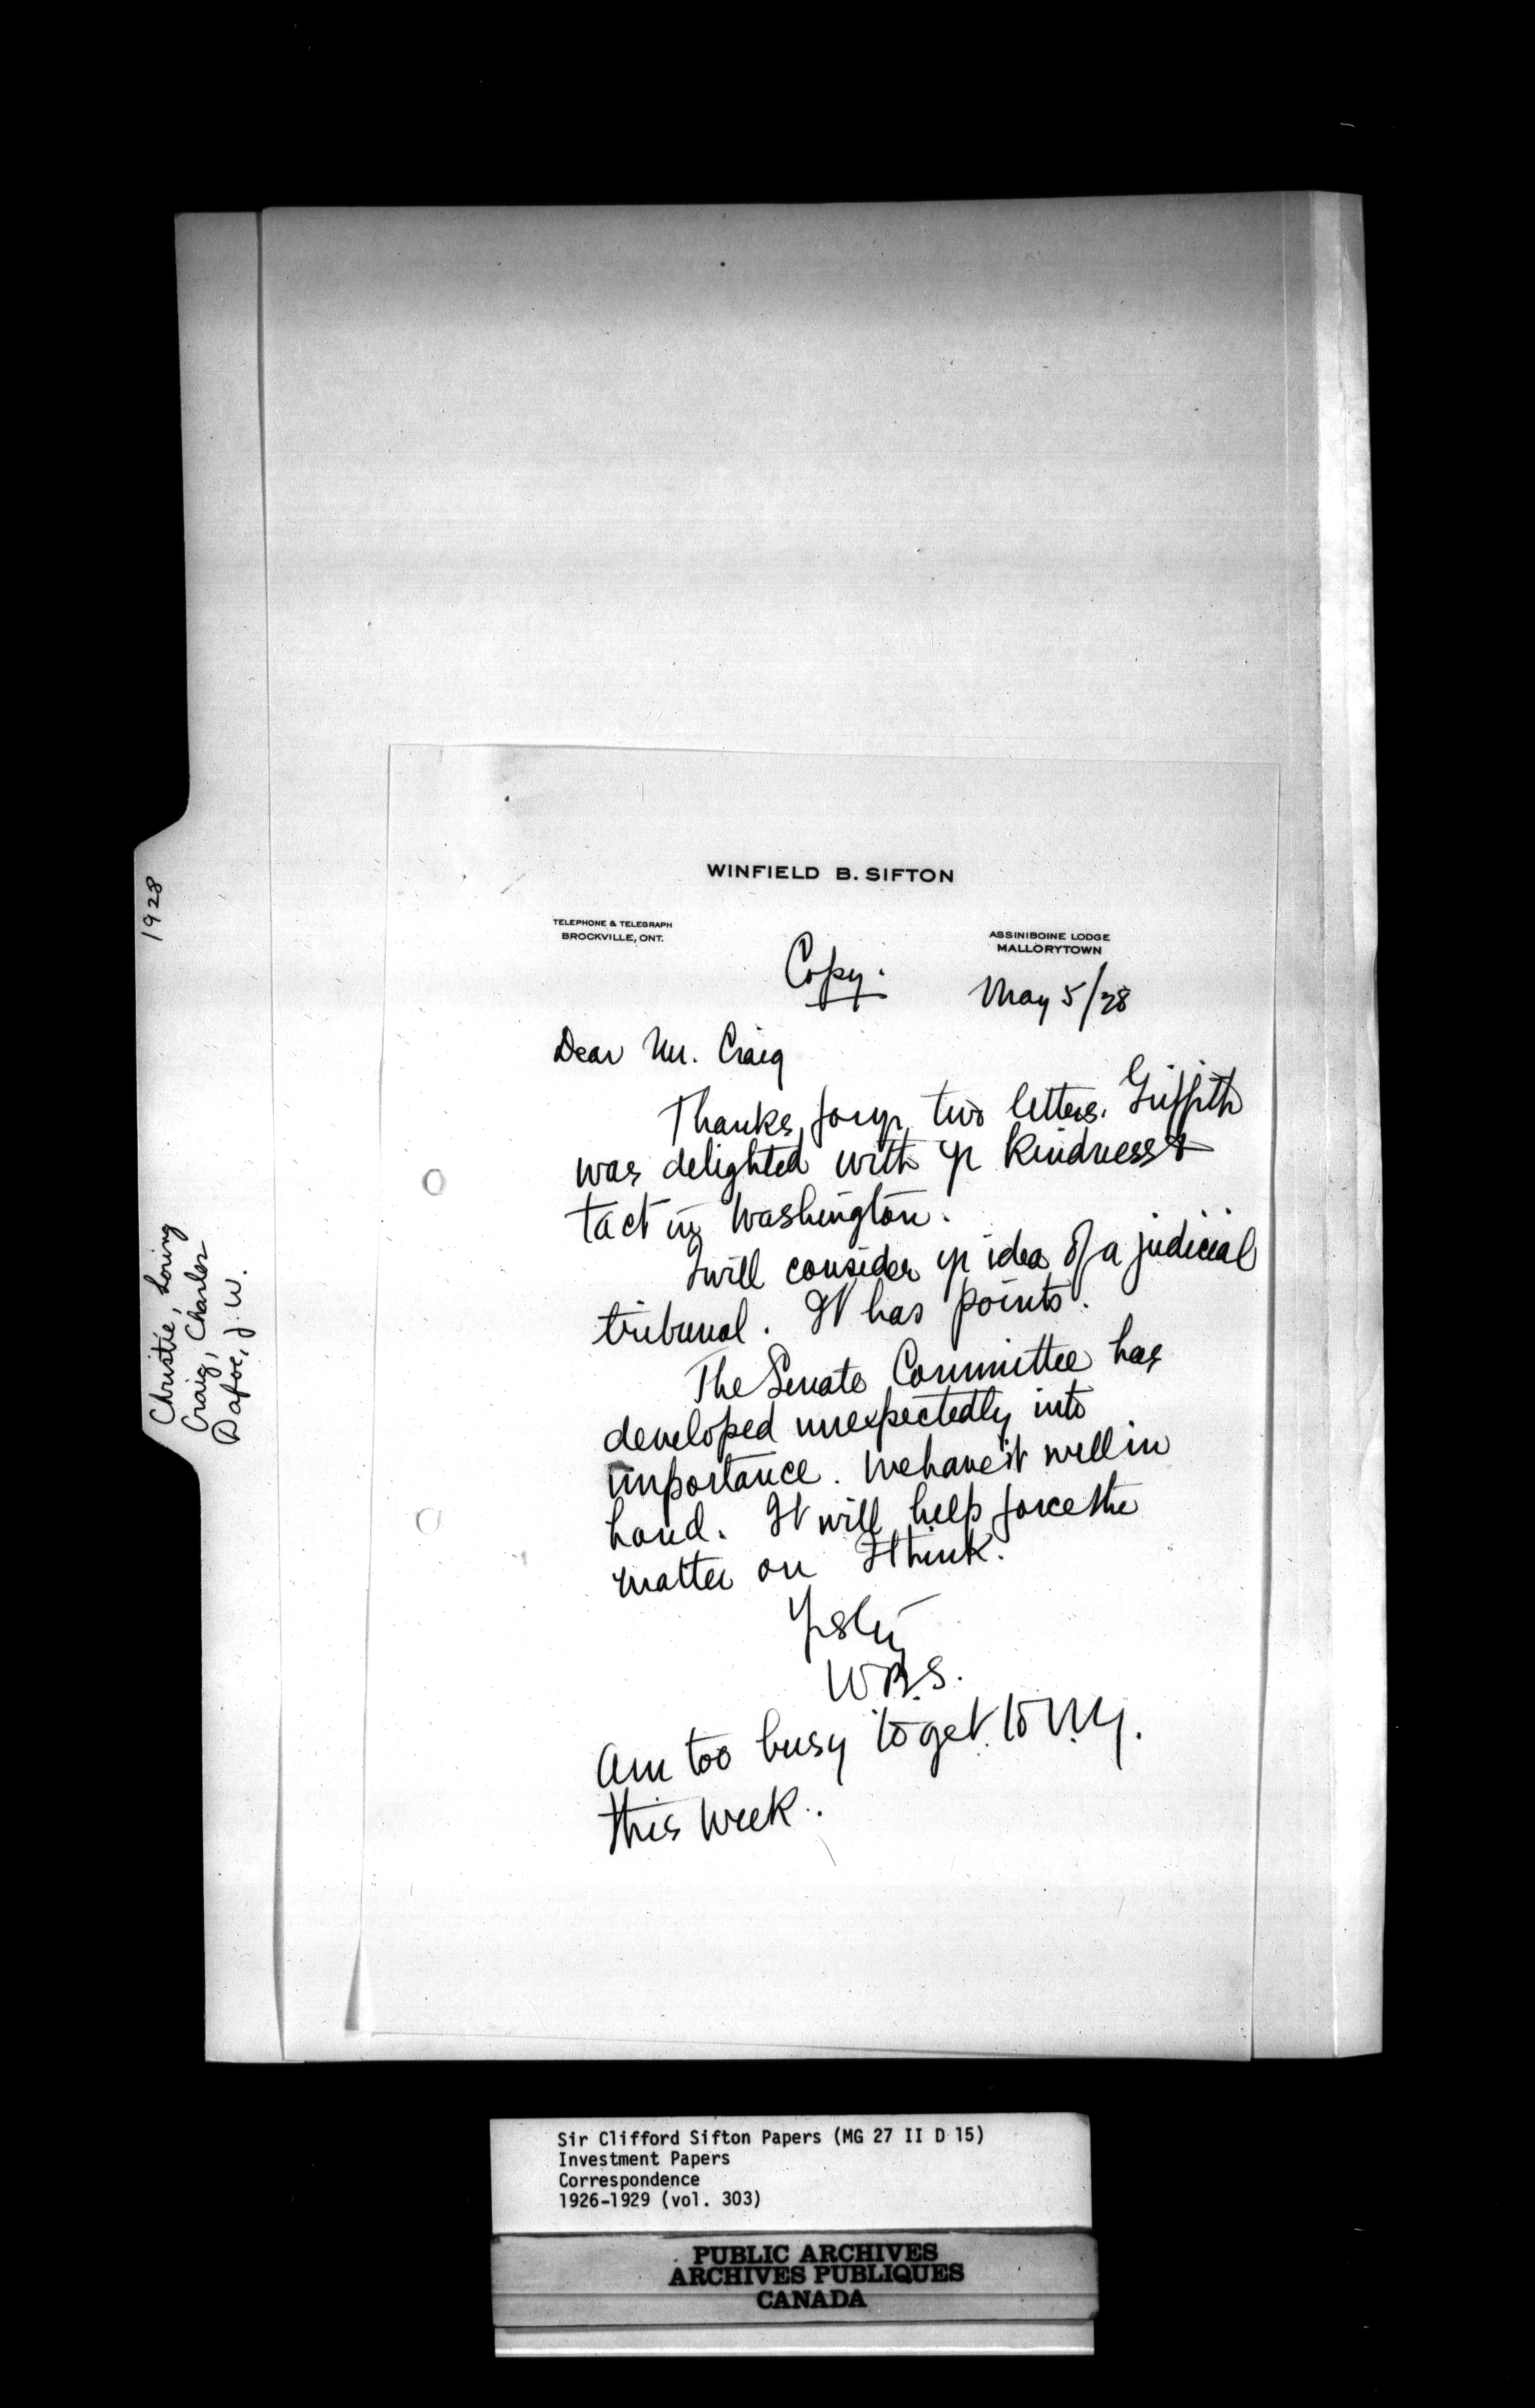 WINFIELD B. SIFTON
TELEPHONE & TELEGRAPH
BROCKVILLE, ONT.
ASSINIBOINE LODGE
MALLORYTOWN
Copy.
May 5/28
Dear Mr. Craig
Thanks for yr two letters. Griffith
was delighted with yr kindness &
tact in Washington.
I will consider yr idea of a judicial
tribunal. It has points.
The Senate Committee has
developed unexpectedly into
importance. We have it well in
hand. It will help force the
matter on I think.
W.B.S.
Am too busy to get to N.Y.
this week.
1928
Christie, Loring
Craig, Charles
Dafoe, J. W.
Sir Clifford Sifton Papers (MG 27 II D 15)
Investment Papers
Correspondence
1926-1929 (vol. 303)
PUBLIC ARCHIVES
ARCHIVES PUBLIQUES
CANADA